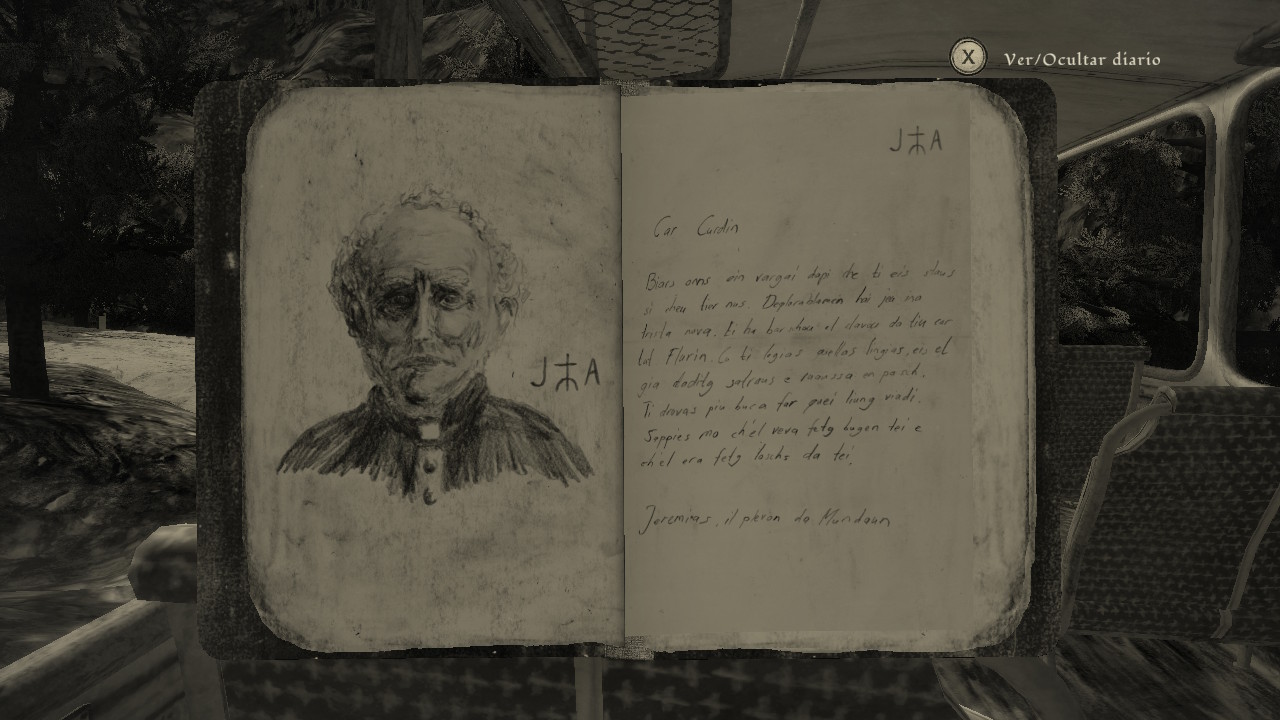 X Ver/Ocultar diario
J A
J A
Car Curdin
Biars onns ein vargai dapi che ti eis staus
si cheu tier nus. Deplorablamein hai jeu ina
trista nova. Ei ha barschau el clavau da tiu car
tat Flurin. C ti legias quellas lingias, eis el
gia daditg satraus e ruaussa en pasch.
Ti drovas piu buca far quei liung viadi.
Seppies mo ch'el vera fetg bugen tei e
ch'el era fetg loschs da tei.
Jeremias, il pleran da Mundaun